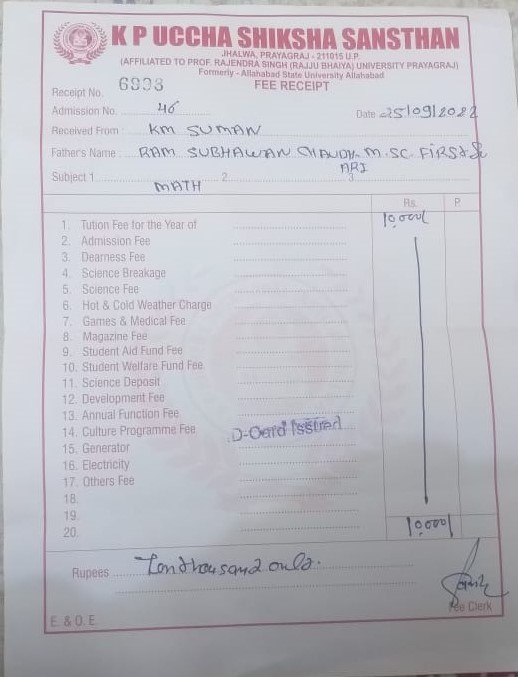 K P UCCHA SHIKSHA SANSTHAN
JHALWA, PRAYAGRAJ - 211015 U.P.
(AFFILIATED TO PROF. RAJENDRA SINGH (RAJJU BHAIYA) UNIVERSITY PRAYAGRAJ)
Formerly - Allahabad State University Allahabad
Receipt No. 6998 FEE RECEIPT
Admission No. 46 Date 25/09/2022
Received From : KM SUMAN
Father's Name : RAM SUBHAWAN CHAUDH- M.SC. FIRST
ARI
Subject 1 2 3
MATH
Rs. P.
1. Tution Fee for the Year of 10,000/
2. Admission Fee
3. Dearness Fee
4. Science Breakage
5. Science Fee
6. Hot & Cold Weather Charge
7. Games & Medical Fee
8. Magazine Fee
9. Student Aid Fund Fee
10. Student Welfare Fund Fee
11. Science Deposit
12. Development Fee
13. Annual Function Fee
14. Culture Programme Fee D-Card Issued
15. Generator
16. Electricity
17. Others Fee
18.
19.
20. 10,000/
Rupees Ten thousand only.
Fee Clerk
E. & O. E.